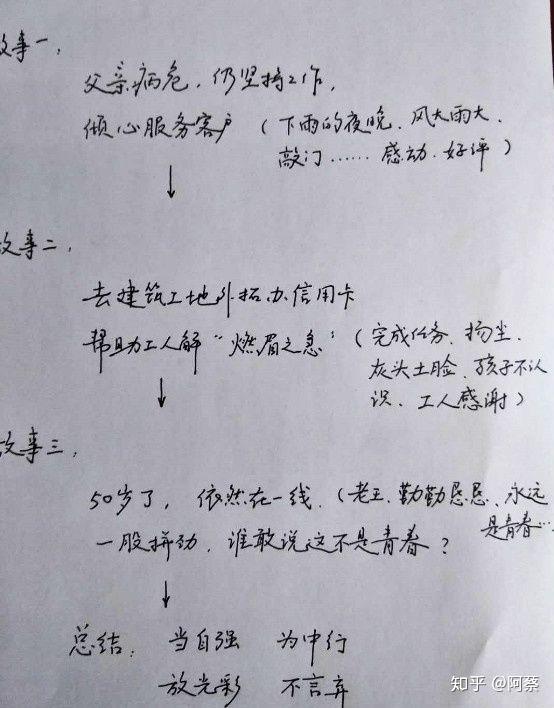 故事一,
父亲病危,仍坚持工作,
倾心服务客户(下雨的夜晚、风大雨大、
敲门……感动、好评)
↓
故事二,
去建筑工地外拓办信用卡
帮助工人解“燃眉之急”(完成任务、扬尘、
灰头土脸、孩子不认
识、工人感谢)
↓
故事三,
50岁了,依然在一线、(老王、勤勤恳恳、永远
是青春…
一股拼劲,谁敢说这不是青春?
↓
总结: 当自强 为中行
放光彩 不言弃
知乎 @阿蔡